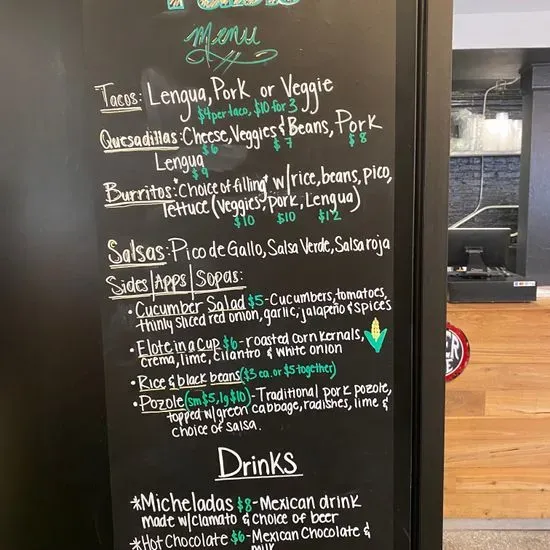 Menu
Tacos: Lengua, Pork or Veggie
$4 per taco, $10 for 3
Quesadillas: Cheese, Veggies & Beans, Pork
$6 $7 $8
Lengua
$9
Burritos: Choice of filling w/rice, beans, pico,
lettuce (Veggies, Pork, Lengua)
$10 $10 $12
Salsas: Pico de Gallo, Salsa Verde, Salsa roja
Sides|Apps|Sopas:
• Cucumber Salad $5 - Cucumbers, tomatoes,
thinly sliced red onion, garlic, jalapeño & spices
• Elote in a Cup $6 - roasted corn kernals,
crema, lime, cilantro & white onion
• Rice & black beans ($3 ea. or $5 together)
• Pozole (sm $5, lg $10) - Traditional pork pozole,
topped w/green cabbage, radishes, lime &
choice of salsa.
Drinks
*Micheladas $8 - Mexican drink
made w/clamato & choice of beer
*Hot Chocolate $6 - Mexican Chocolate &
milk